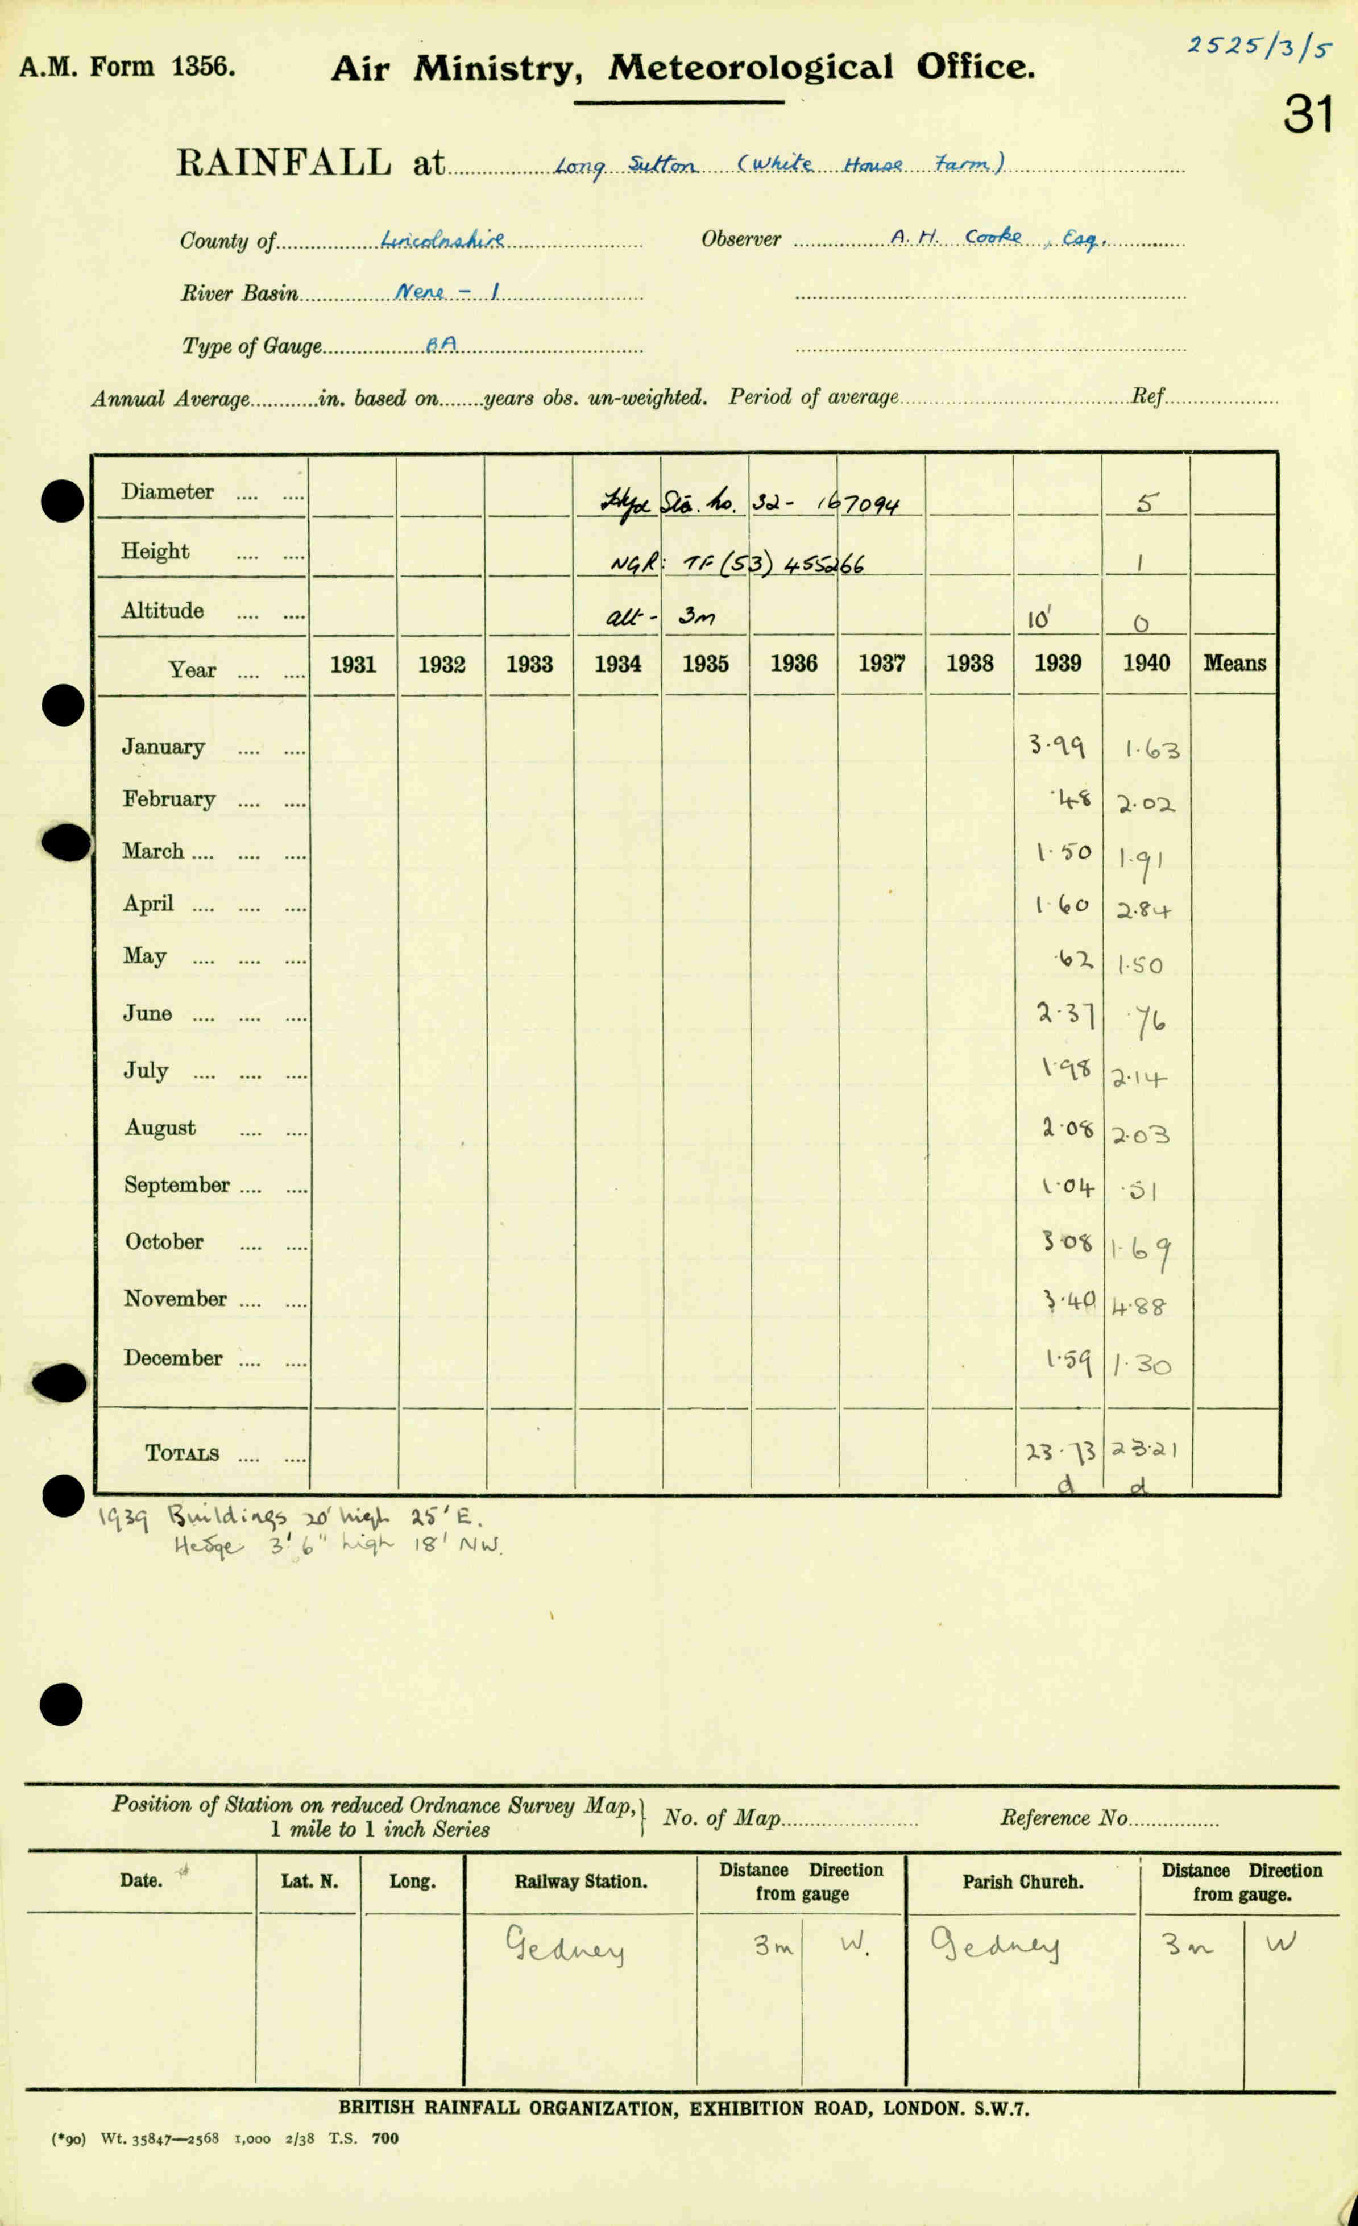 2525/3/5
A.M. Form 1356. Air Ministry, Meteorological Office.
31
RAINFALL at Long Sutton (White House Farm)
County of Lincolnshire Observer A. H. Cooke, Esq.
River Basin Nene - 1
Type of Gauge 8A
Annual Average in. based on years obs. un-weighted. Period of average Ref
Diameter .... .... Hyd Sta. No. 32- 167094 5
Height .... .... NGR: TF (53) 455266 1
Altitude .... .... alt - 3m 10' 0
Year .... .... 1931 1932 1933 1934 1935 1936 1937 1938 1939 1940 Means
January .... .... 3.99 1.63
February .... .... .48 2.02
March .... .... .... 1.50 1.91
April .... .... .... 1.60 2.84
May .... .... .... .62 1.50
June .... .... .... 2.37 .76
July .... .... .... 1.98 2.14
August .... .... 2.08 2.03
September .... .... 1.04 .51
October .... .... 3.08 1.69
November .... .... 3.40 4.88
December .... .... 1.59 1.30
TOTALS .... .... 23.73 23.21
d d
1939 Buildings 20' high 25' E.
Hedge 3' 6" high 18' NW.
Position of Station on reduced Ordnance Survey Map, 1 mile to 1 inch Series } No. of Map Reference No
Date. Lat. N. Long. Railway Station. Distance Direction from gauge Parish Church. Distance Direction from gauge.
Gedney 3m W. Gedney 3m W
BRITISH RAINFALL ORGANIZATION, EXHIBITION ROAD, LONDON. S.W.7.
(*90) Wt. 35847—2568 1,000 2/38 T.S. 700